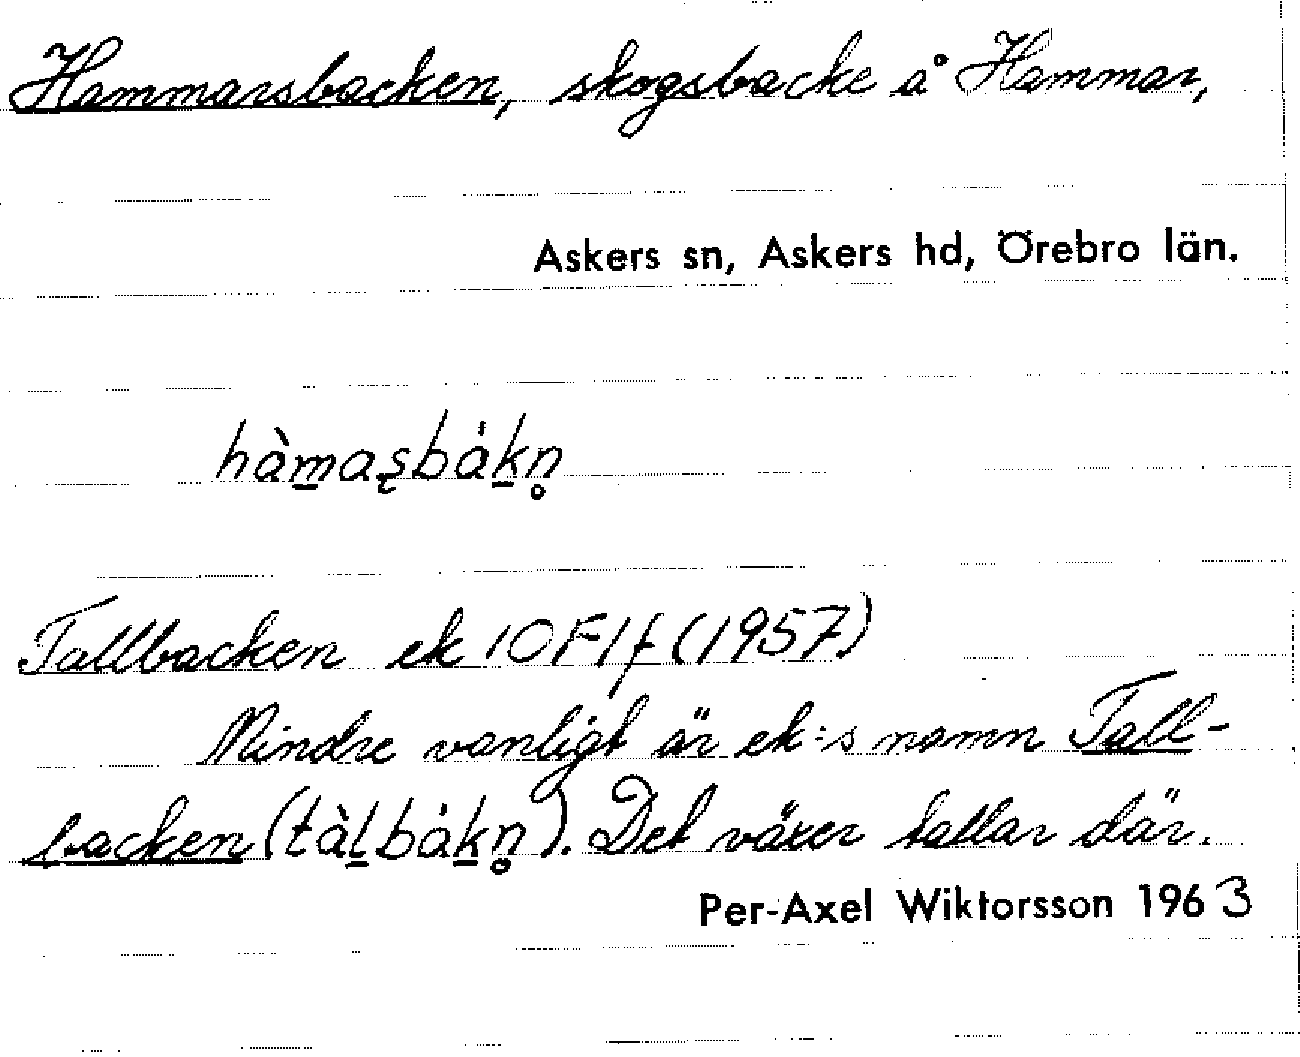 Hammarsbacken, skogsbacke å Hammar,
Askers sn, Askers hd, Örebro län.
hàm̲aʂbák̲n̥
Tallbacken ek 10F1f (1957)
Mindre vanligt är ek:s namn Tall-
backen (tàl̲bák̲n̥). Det växer tallar där.
Per-Axel Wiktorsson 1963